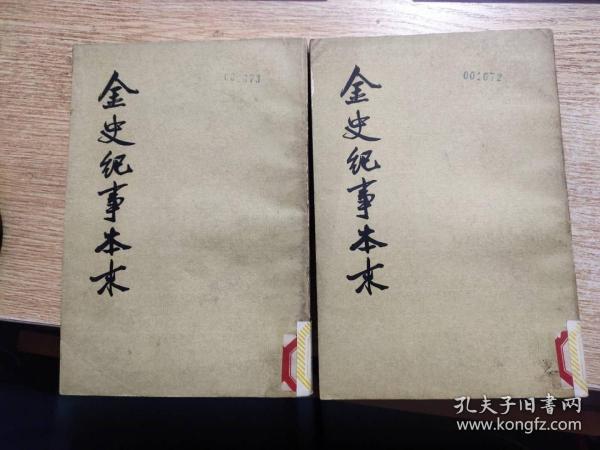 金史纪事本末
001073
金史纪事本末
001072
孔夫子旧书网
www.kongfz.com